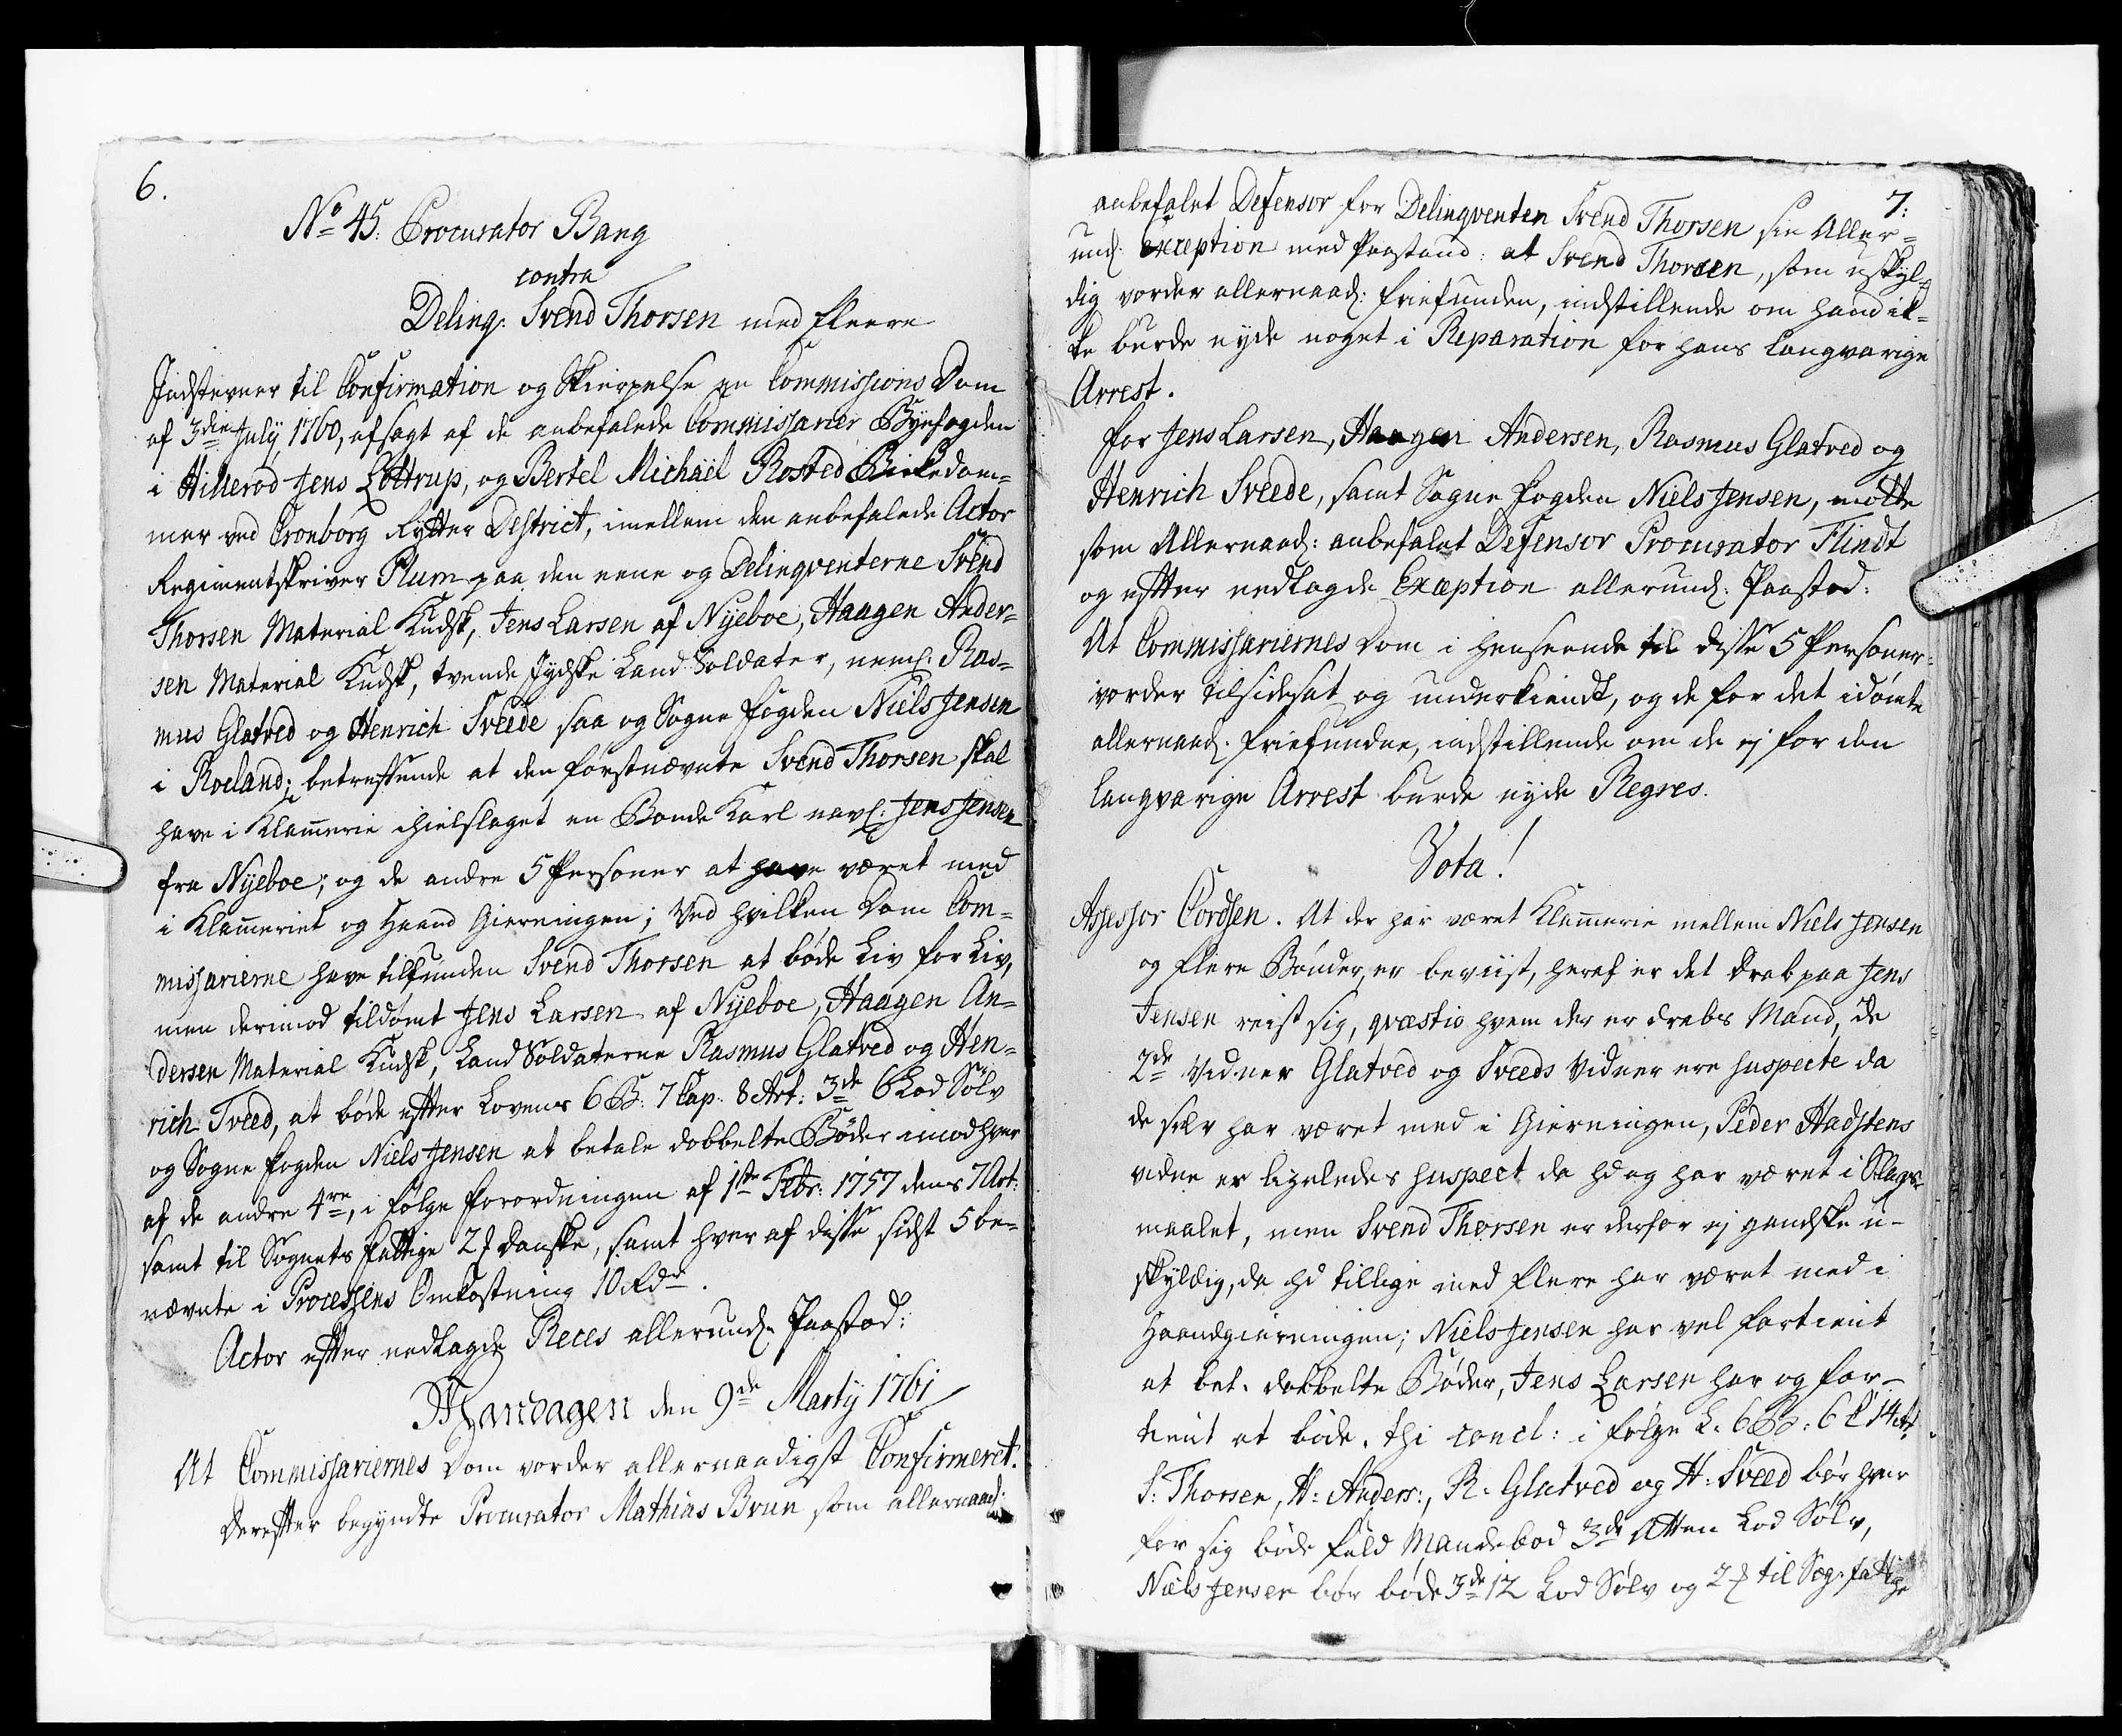 6.
No 45. Procurator Bang
contra
Delinq: Svend Thorsen med fleere
Indstevner til Confirmation og Skierpelse en Commissions Dom
af 3die July 1760, afsagt af de anbefalede Commissarier Byefogden
i Hillerød Jens Lottrup, og Bertel Michaël Rosted Birkedom¬
mer ved Cronborg Rytter District, imellem den anbefalede Actor
Regimentskriver Plum paa den eene og Delinqventerne Svend
Thorsen Material Kudsk, Jens Larsen af Nyeboe, Haagen Ander¬
sen Material Kudsk, tvende Jydske Land Soldater, neml. Ras¬
mus Glatved og Henrich Sveede saa og Sogne fogden Niels Jensen
i Roeland; betreffende at den førstnævnte Svend Thorsen skal
have i Klam̄erie ihielslaget en Bonde Karl navl. Jens Jensen
fra Nyeboe; og de andre 5 Personer at have været med
i Klam̄eriet og Haand Gierningen; Ved hvilken Dom Com¬
missarierne have tilfunden Svend Thorsen at bøde Liv for Liv,
men derimod tildømt Jens Larsen af Nyeboe, Haagen An¬
dersen Material Kudsk, Land Soldaterne Rasmus Glatved og Hen¬
rich Sveed, at bøde efter Lovens 6 B: 7 Cap: 8 Art: 3de 6 Lod Sølv
og Sogne fogden Niels Jensen at betale dobbelte Bøder imod hver
af de andre 4re, i følge Forordningen af 1ste Febr: 1757 dens 7 Art:
samt til Sognets Fattige 2 ₰ danske, samt hver af disse sidst 5 be¬
nævnte i Processens Omkostning 10 Rdr.
Actor efter nedlagde Reces allerund. Paastod:
Mandagen den 9de Marty 1761
At Commissariernes Dom vorder allernaadigst Confirmeret.
Derefter begyndte Procurator Mathias Brun som allernaad:
7.
anbefalet Defensor for Delinqventen Svend Thorsen sin Aller¬
und: Exception med Paastand: at Svend Thorsen, som uskyl¬
dig vorder allernaad: friefunden, indstillende om hand ik¬
ke burde nyde noget i Reparation for hans langvarige
Arrest.
For Jens Larsen, Haagen Andersen, Rasmus Glatved og
Henrich Sveede, samt Sogne Fogden Niels Jensen, mødte
som Allernaad: anbefalet Defensor Procurator Flindt
og efter nedlagde Exception allerund: Paastod:
At Commissariernes Dom i henseende til disse 5 Personer
vorder tilsidesat og underkiendt, og de for det idømte
allernaad. friefundne, indstillende om de ej for den
langvarige Arrest burde nyde Regres.
Vota!
Assessor Cordsen. At der har været Klam̄erie mellem Niels Jensen
og flere Bønder, er beviist, heraf er det Drab paa Jens
Jensen reist sig, qvæstio hvem der er drabs Mand, de
2de Vidner Glatved og Sveeds Vidner ere suspecte da
de selv har været med i Gierningen, Peder Hadstens
vidne er ligeledes suspect da hd og har været i Slags¬
maalet, men Svend Thorsen er derfor ej gandske u¬
skyldig, da hd tillige med flere har været med i
Haandgierningen; Niels Jensen har vel fortient
at bet. dobbelte Bøder, Jens Larsen har og for¬
tient at bøde. thi concl: i følge L. 6 B: 6 C 14 Art.
S: Thorsen, H: Anders:, R. Glatved og H: Sveed bør hver
for sig bøde fuld Mandebod 3de Atten Lod Sølv,
Niels Jensen bør bøde 3de 12 Lod Sølv og 2 ₰ til Sog. fattige